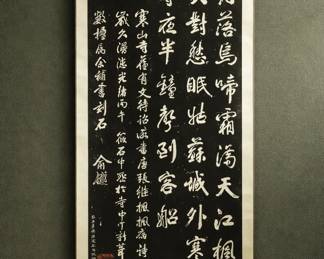 月落烏啼霜滿天江楓
火對愁眠姑蘇城外寒
寺夜半鐘聲到客船
寒山寺舊有文待詔所書唐張繼楓橋夜泊詩
歲久漫漶光緒丙午筱石中丞於寺中新葺
數楹屬余補書刻石 俞樾